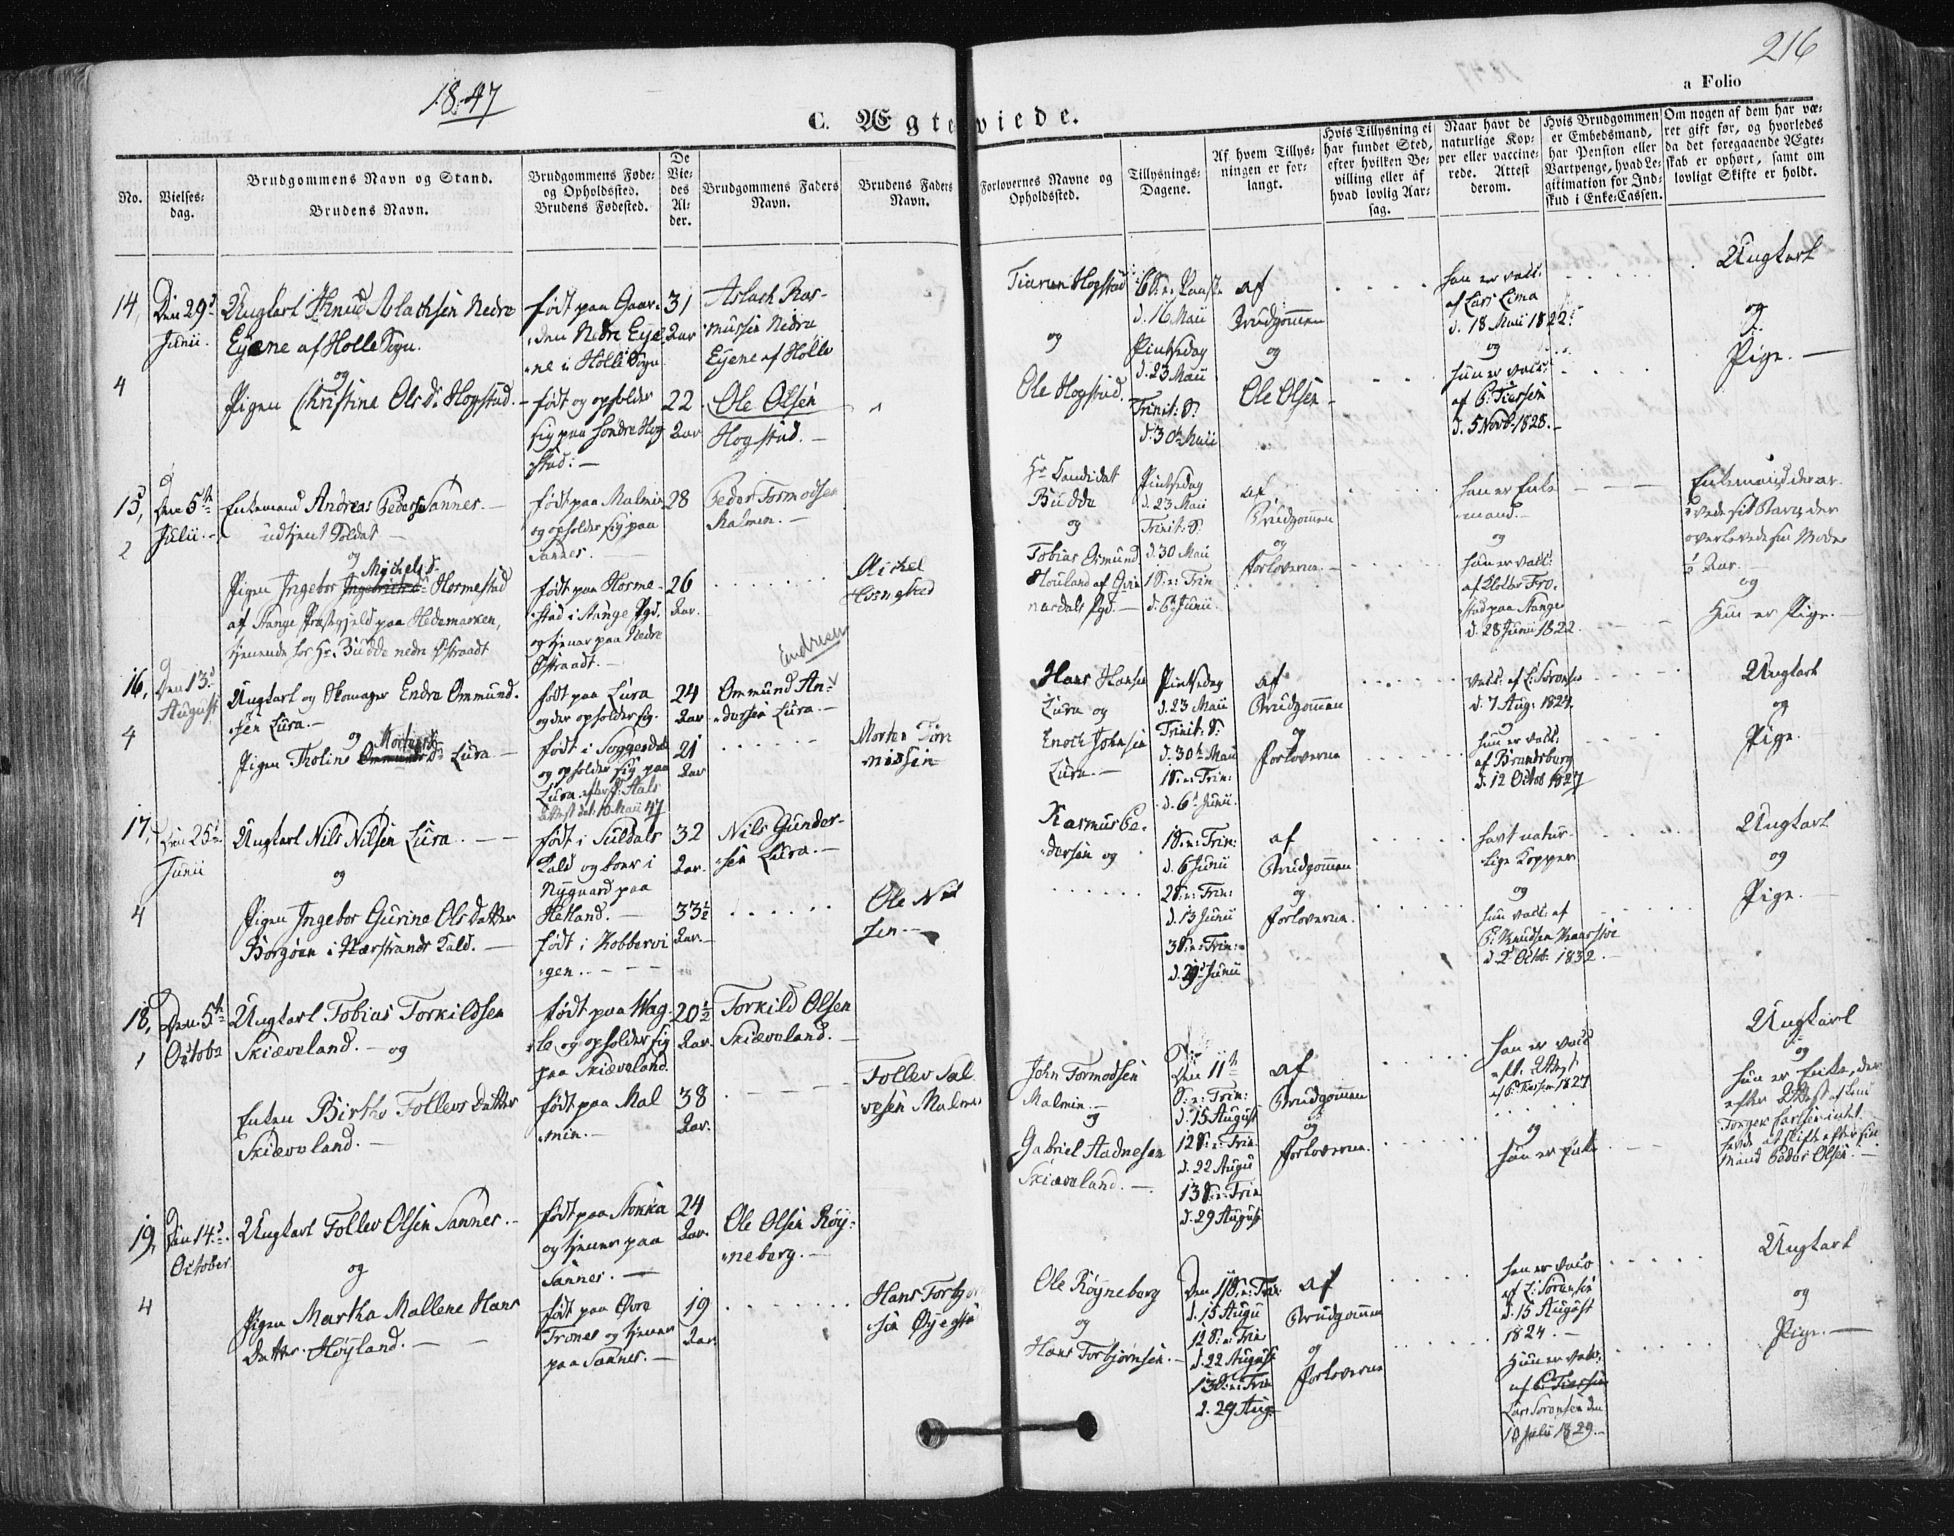 216
1847
a Folio
C. Ægteviede.
No.
Vielses-
dag.
Brudgommens Navn og Stand.
Brudens Navn.
Brudgommens Føde-
og Opholdssted.
Brudens Fødested.
De
Vie-
des
Al-
der.
Brudgommens Faders
Navn.
Brudens Faders
Navn.
Forlovernes Navne og
Opholdssted.
Tillysnings-
Dagene.
Af hvem Tillys-
ningen er for-
langt.
Hvis Tillysning ei
har fundet Sted,
efter hvilken Be-
villing eller af
hvad lovlig Aar-
sag.
Naar havt de
naturlige Kop-
per eller vaccine-
rede. Attest
derom.
Hvis Brudgommen
er Embedsmand,
har Pension eller
Vartpenge, hvad Le-
gitimation for Ind-
skud i Enke-Cassen.
Om nogen af dem har væ-
ret gift før, og hvorledes
da det foregaaende Ægte-
skab er ophørt, samt om
lovligt Skifte er holdt.
14,
4
Den 29d
Junii.
Ungkarl Knud Aslachsen Nedre
Eyene af Holle Sogn.
og
Pigen Christine Ols D. Hogstad.
født paa Gaar-
den Nedre Eye-
ne i Holle Sogn
født og opholder
sig paa søndre Hog
stad. —
31
Aar
22
Aar
Aslach Ras-
mussen Nedre
Eyene af Holle
Ole Olsen
Hogstad. —
Hogstad
og
Ole Hogstad.
d. 16 Maii
Pintsedag
d. 23 Maii
Trinit: S.
d. 30te Maii
af
Brudgommen
og
Ole Olsen
han er vacc:
af Lars Lima
d. 18 Maii 1822.
og
hun er vacc:
af
d. 5 Novb. 1828. —
Ungkarl
og
Pige. —
15,
2
Den 5te
Julii. —
Enkemand Andreas Peders. Sannes. —
udtjent Soldat —
og
Michels d.
Pigen Ingebor Hormestad
af Stange Præstegjeld paa Hedemarken,
tjenende hos Hr. Budde nedre Østraadt
født paa Malmin
og opholder sig paa
Sannes. —
født paa Horme-
stad i Stange Pgd.
og tjener paa Nedre
Østraadt. —
28
26
Aar.
Peder Tormodsen
Malmin. —
Michel
Hr. Candidat
Budde
og
Tobias Osmund
Pintsedag
d. 23 Maii
Trinit: S.
d. 30 Maii
1 S. e: Trin
d. 6te Junii.
af
Brudgommen
og
Forloverne. —
han er Enke
mand. —
og
hun er vacc:
d. 28 Junii 1822.
og
Hun er Pige. —
16,
4
Den 13d
August
Ungkarl og Skomager Endre Ommund.
sen Lura. —
og
Mortens
Pigen Tholine D. Lura —
født paa Lura
og der opholder sig.
født i Soggendal
og opholder sig paa
Lura
24
Aar
21
Aar
Endresen
Ommund An-
dersen Lura. —
Morten Tøn-
nessen
Hans Hansen
Lura og
Enoch Johnsen
Lura. —
Pintsedag
d. 23 Maii
Trinit: S.
d. 30te Maii
1 S. e: Trin:
d. 6te Junii.
af
Brudgommen
og
Forloverne
vacc: af L: Sørensen
d. 7 Aug: 1824.
og
hun er vacc:
af
d. 12 Octob 1827
Ungkarl
og
Pige.
17,
4
Den 25de
Junii
Ungkarl Nils Nilsen Lura. —
og
Pigen Ingebor Gurine Ols Datter
Borgøen i Nærstrands Kald. —
født i Suldals
Kald og boer i
Nygaard paa
Hetland. —
født i Kobbervi
gen. —
32
Aar.
33½
Aar. —
Nils Gunder-
sen Lura. —
Ole Nil
sen. —
Rasmus Pe-
dersen og
1 S. e: Trin:
d. 6 Junii
2 S. e: Trin:
d. 13 Junii
3 S. e: Trin:
d. 20 Junii
af
Brudgommen
og
Forloverne.
havt natur-
lige Kopper
og
hun vacc: af
d. 2 Octob. 1832. —
Ungkarl
og
Pige. —
18,
1
Den 5te
Octobr
Ungkarl Tobias Torkildsen
Skiæveland. — og
Enken Birthe Tollevs Datter
Skiæveland. —
født paa Wag-
le og opholder sig
paa Skiæveland.
født paa Mal
min. —
20½
Aar.
38
Aar.
Torkild Olsen
Skiæveland. —
Tollev Sal
vesen Malmin
John Tormodsen
Malmin. —
og
Gabriel Aadnesen
Skiæveland. —
Den 11te
S. e: Trin:
d. 15 August
12 S. e: Trin
d. 22 Augu
13 S. e: Trin
d. 29 August
af
Brudgommen
og
Forloverne.
han er vacc
og
hun er Enke
Ungkarl
og
hun er Enke, der
efter Attest af
havde at skifte efter sin
Mand Peder Olsen. —
19,
4
Den 14d
October
Ungkarl Tollev Olsen Sannes. —
og
Pigen Martha Mallene Hans
Datter Høyland. —
født paa Stokka
og tjener paa
Sannes. —
født paa Øvre
Trones og tjener
paa Sannes. —
24
Aar.
19
Aar.
Ole Olsen Røy-
neberg. —
Hans Torbjørn
sen
Ole Røyneberg
og
Hans Torbjørnsen. —
Den 11 S. e: Trin
d. 15 Augu
12 S. e: Trin
d. 22 August
13 S. e: Trin
d. 29 Aug
af
Brudgommen
og
Forloverne
han er vacc
af L: Sørensen
d. 15 August
1824. —
Hun er vacc:
Lars Sørensen den
10 Julii 1829. —
Ungkarl
og
Pige. —